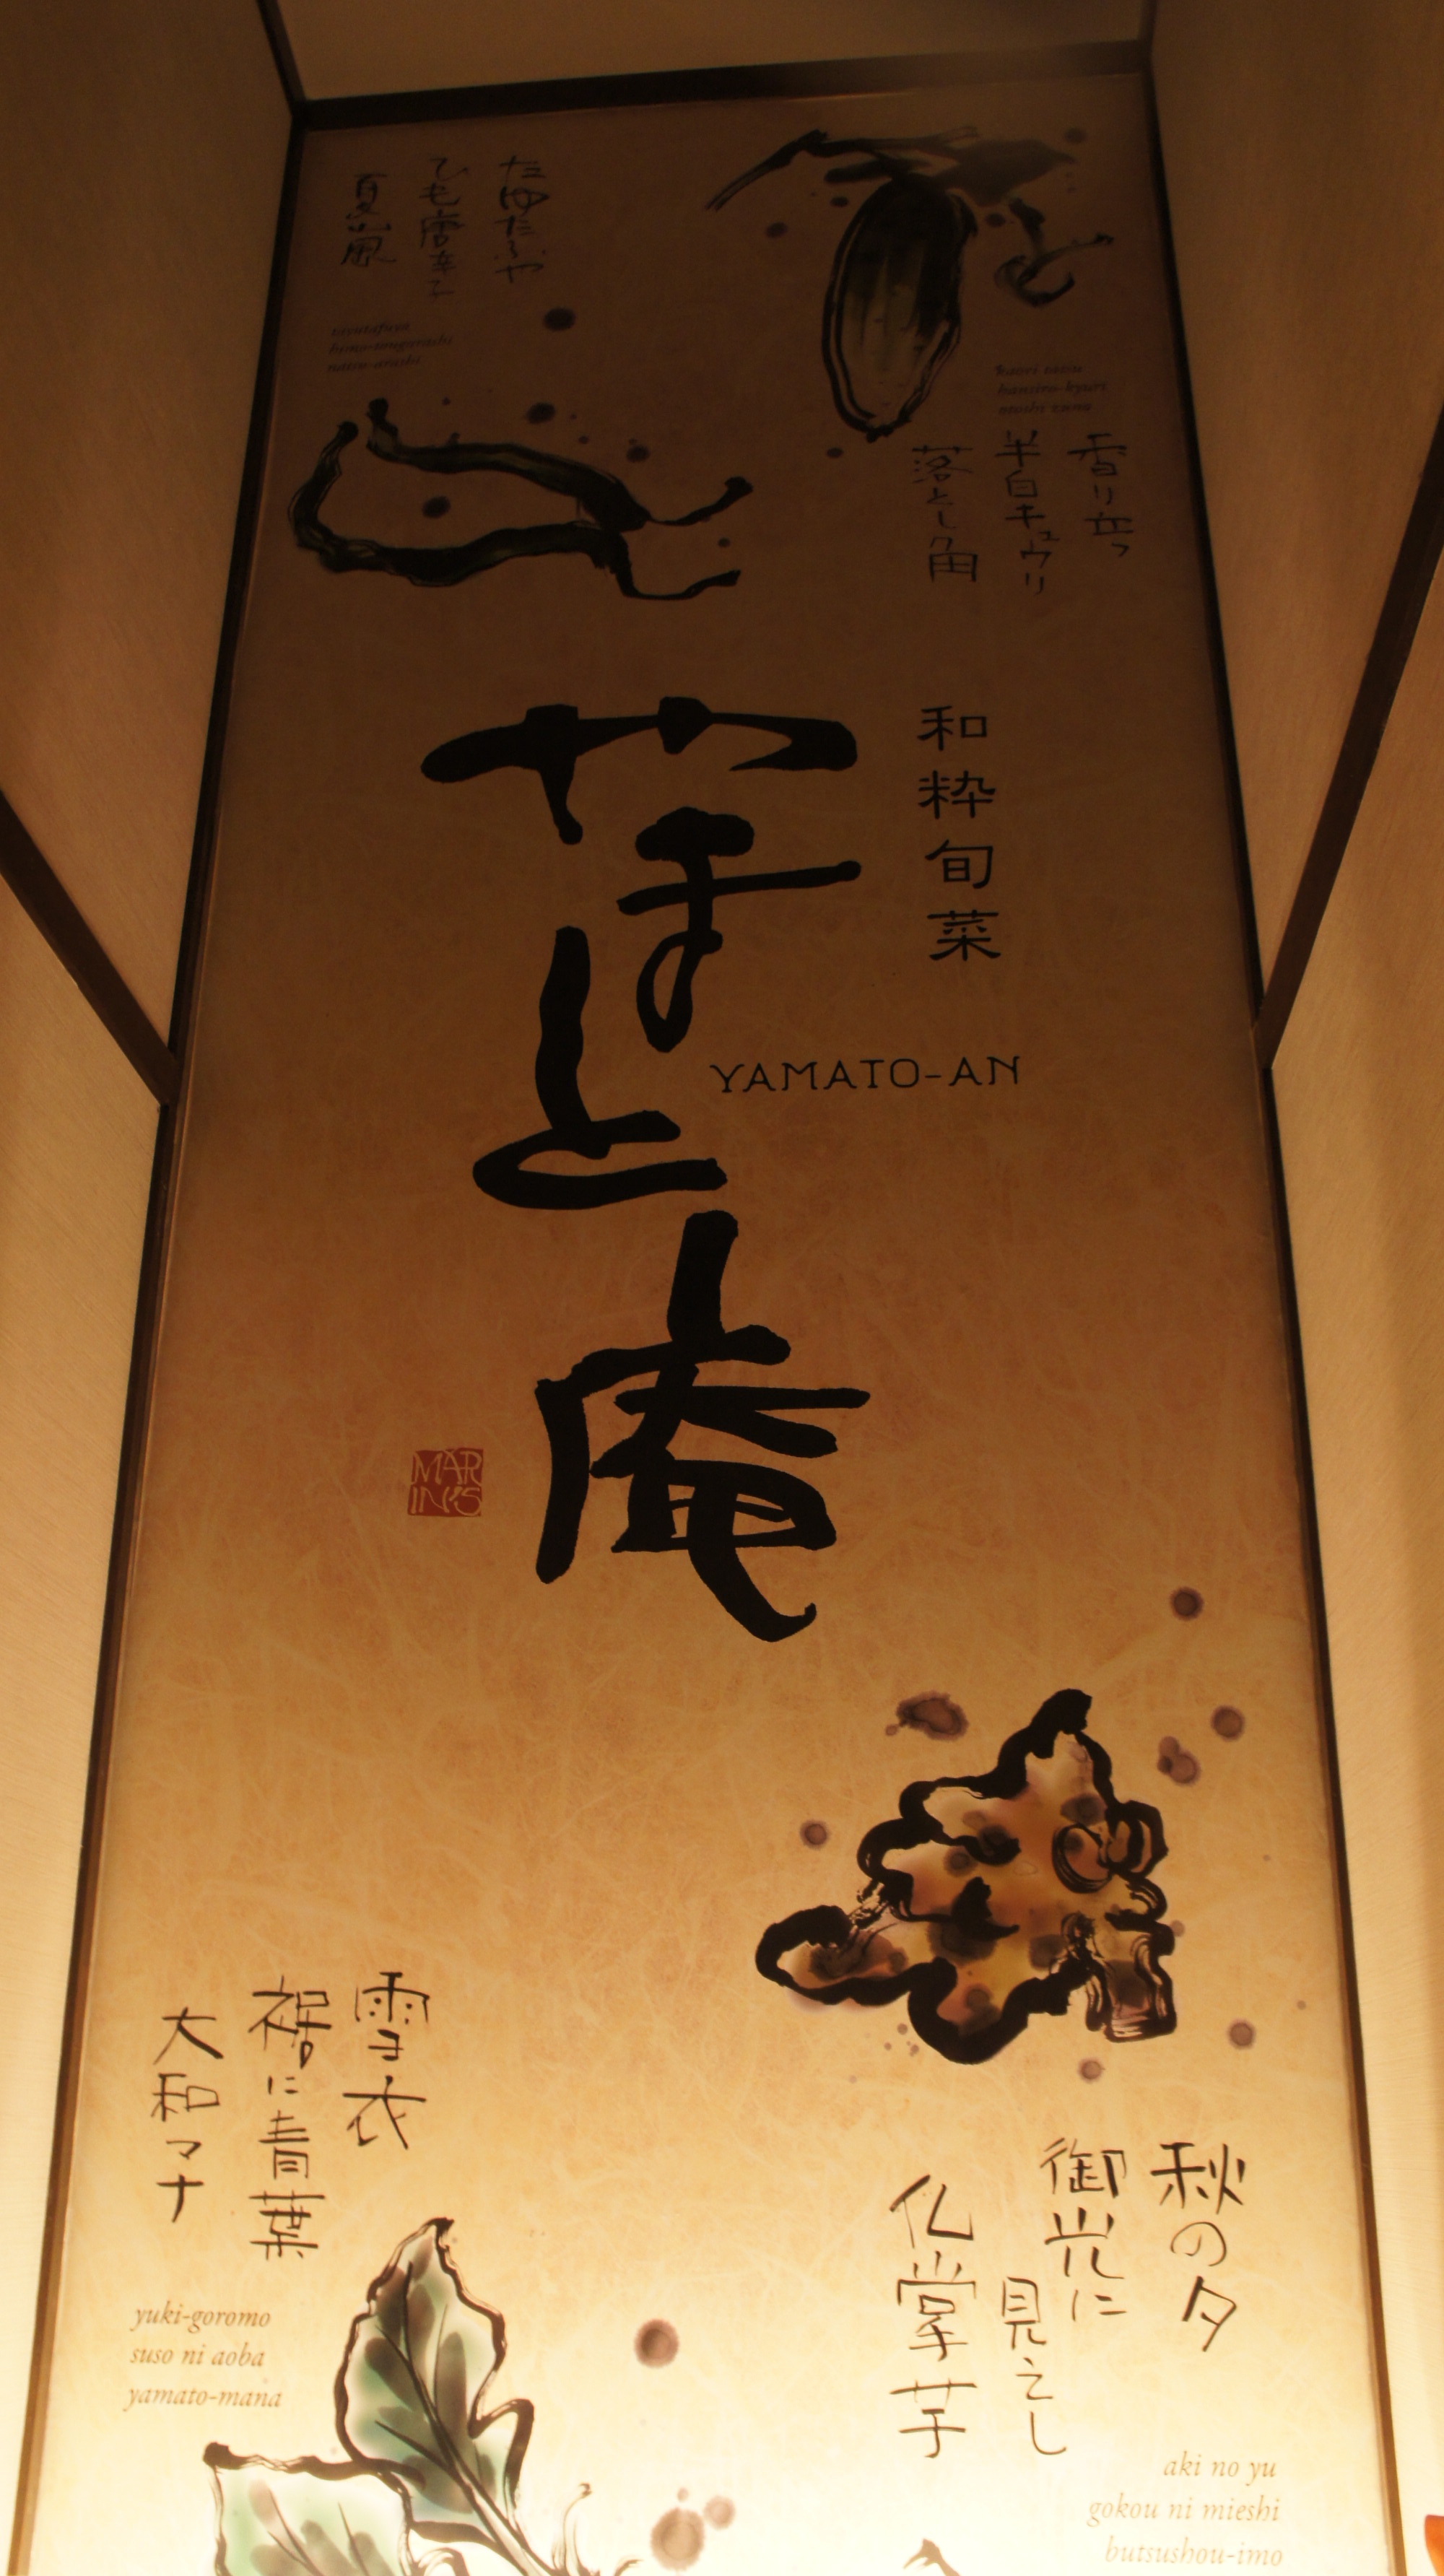 たゆたふや
ひも唐辛子
夏山風
香り立つ
半白キュウリ
落とし角
和粋旬菜
やまと庵
YAMATO-AN
MAR
INKS
雪衣
裾に青葉
大和マナ
yuki-goromo
suso ni aoba
yamato-mana
秋の夕
御光に
見えし
仏掌芋
aki no yu
gokou ni mieshi
butsushou-imo